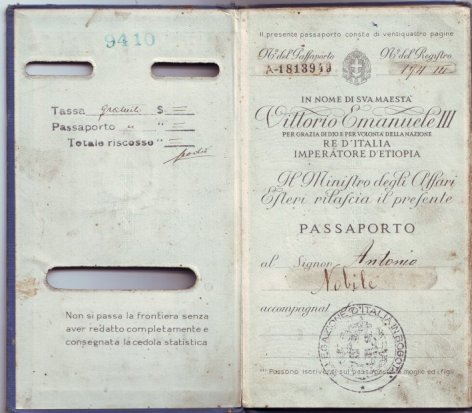 9410
Tassa gratuiti $ =
Passaporto " " =
Totale riscosso " =
Non si passa la frontiera senza
aver redatto completamente e
consegnata la cedola statistica
Il presente passaporto consta di ventiquattro pagine
No del Passaporto No del Registro
A-1813949 194
IN NOME DI SVA MAESTA'
Vittorio Emanuele III
PER GRAZIA DI DIO E PER VOLONTA DELLA NAZIONE
RE D'ITALIA
IMPERATORE D'ETIOPIA
Il Ministro degli Affari
Esteri rilascia il presente
PASSAPORTO
al Signor Antonio
Nobile
accompagnat
LEGAZIONE D'ITALIA IN BOGOTA
Possono iscriversi sul passaporto la moglie ed i figli